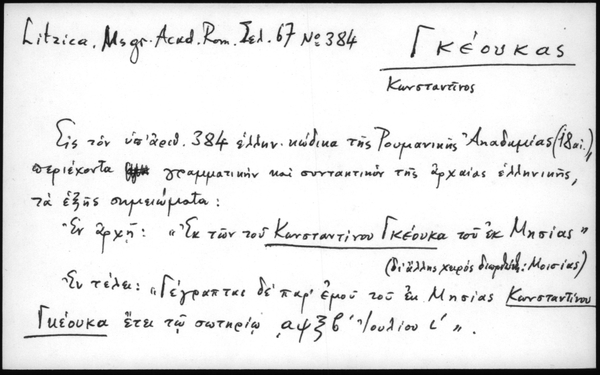 Litzica. Msgr. Acad. Rom. Σελ. 67 Νο 384
Γκέουκας
Κωνσταντῖνος
Εἰς τὸν ὑπ' ἀριθ. 384 ἑλλην. κώδικα τῆς Ρουμανικῆς Ἀκαδημίας (18 αἰ.),
περιέχοντα γραμματικὴν καὶ συντακτικὸν τῆς ἀρχαίας ἑλληνικῆς,
τὰ ἑξῆς σημειώματα:
Ἐν ἀρχῇ: "Ἐκ τῶν τοῦ Κωνσταντίνου Γκέουκα τοῦ ἐκ Μησίας"
(δι' ἄλλης χειρὸς διορθωθ.: Μοισίας)
Ἐν τέλει: "Γέγραπται δὲ παρ' ἐμοῦ τοῦ ἐκ Μησίας Κωνσταντίνου
Γκέουκα ἔτει τῷ σωτηρίῳ ͵αψξβ' Ἰουλίου ι'".